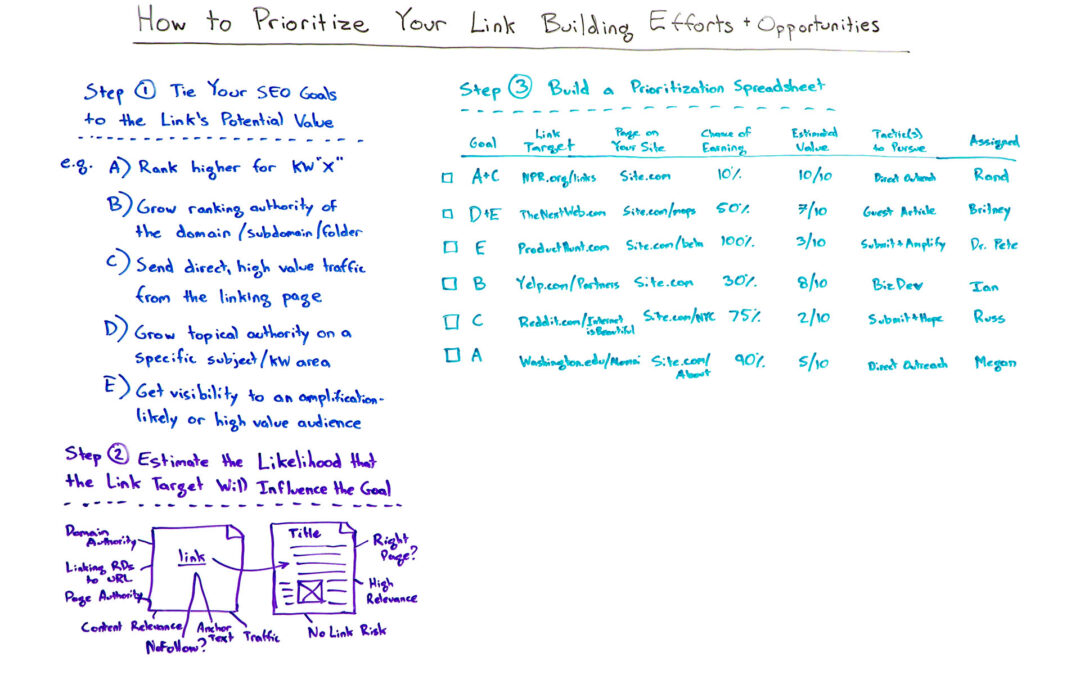 How to Prioritize Your Link Building Efforts + Opportunities
Step 1 Tie Your SEO Goals
to the Link's Potential Value
e.g. A) Rank higher for KW "X"
B) Grow ranking authority of
the domain/subdomain/folder
C) Send direct, high value traffic
from the linking page
D) Grow topical authority on a
specific subject/KW area
E) Get visibility to an amplification-
likely or high value audience
Step 2 Estimate the Likelihood that
the Link Target Will Influence the Goal
Domain
Authority
Linking RDs
to URL
Page Authority
Content Relevance
NoFollow?
Anchor
Text
Traffic
link
Title
Right
Page?
High
Relevance
No Link Risk
Step 3 Build a Prioritization Spreadsheet
Goal Link Target Page on Your Site Chance of Earning Estimated Value Tactic(s) to Pursue Assigned
A+C NPR.org/links Site.com 10% 10/10 Direct Outreach Rand
D+E TheNextWeb.com Site.com/maps 50% 7/10 Guest Article Britney
E ProductHunt.com Site.com/beta 100% 3/10 Submit+Amplify Dr. Pete
B Yelp.com/Partners Site.com 30% 8/10 BizDev Ian
C Reddit.com/Internet
is Beautiful Site.com/NYC 75% 2/10 Submit+Hope Russ
A Washington.edu/ Site.com/
About 90% 5/10 Direct Outreach Megan